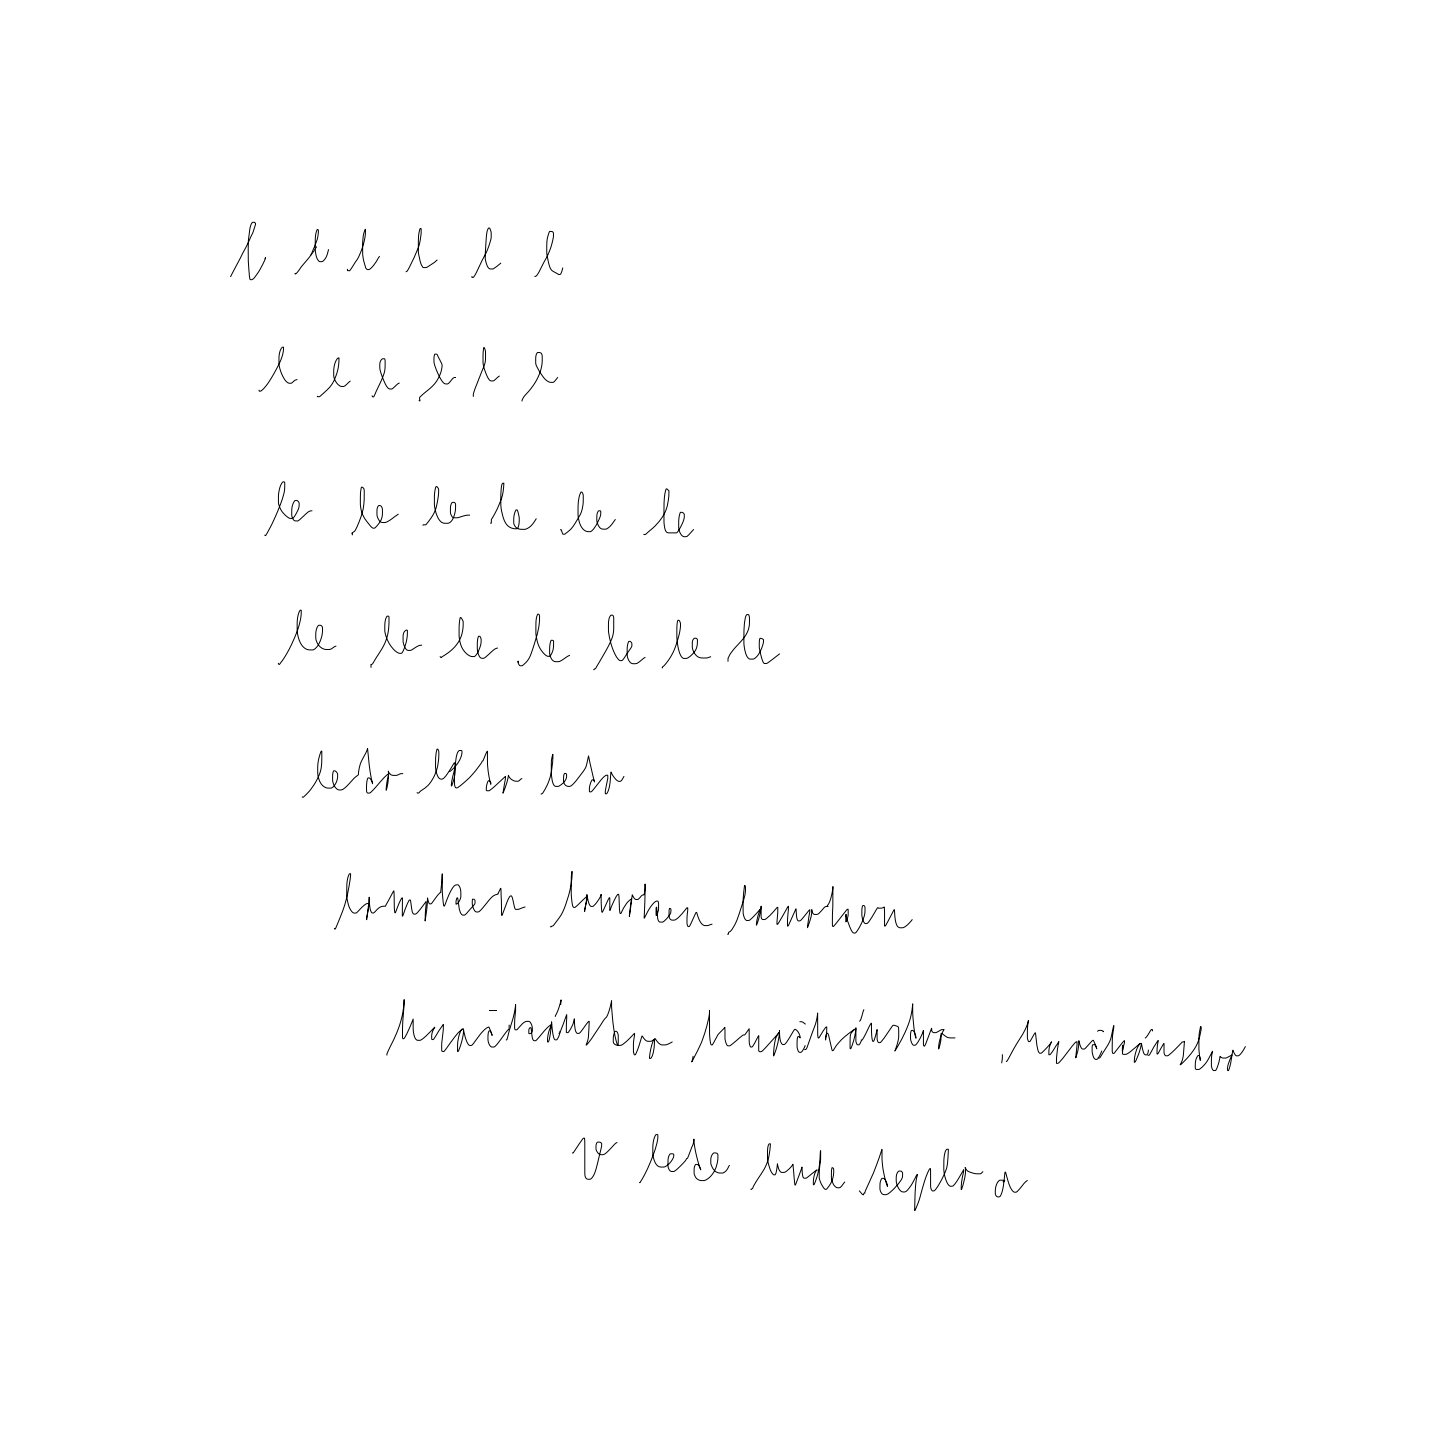 l l l l l l
l l l l l l
le le le le le le
le le le le le le le
leto leto leto
lamoken lamoken lamoken
hračkárstvo hračkárstvo hračkárstvo
V lete bude teplo a